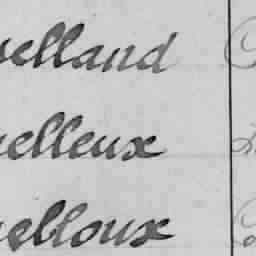 uelland
uelleux
uelloux